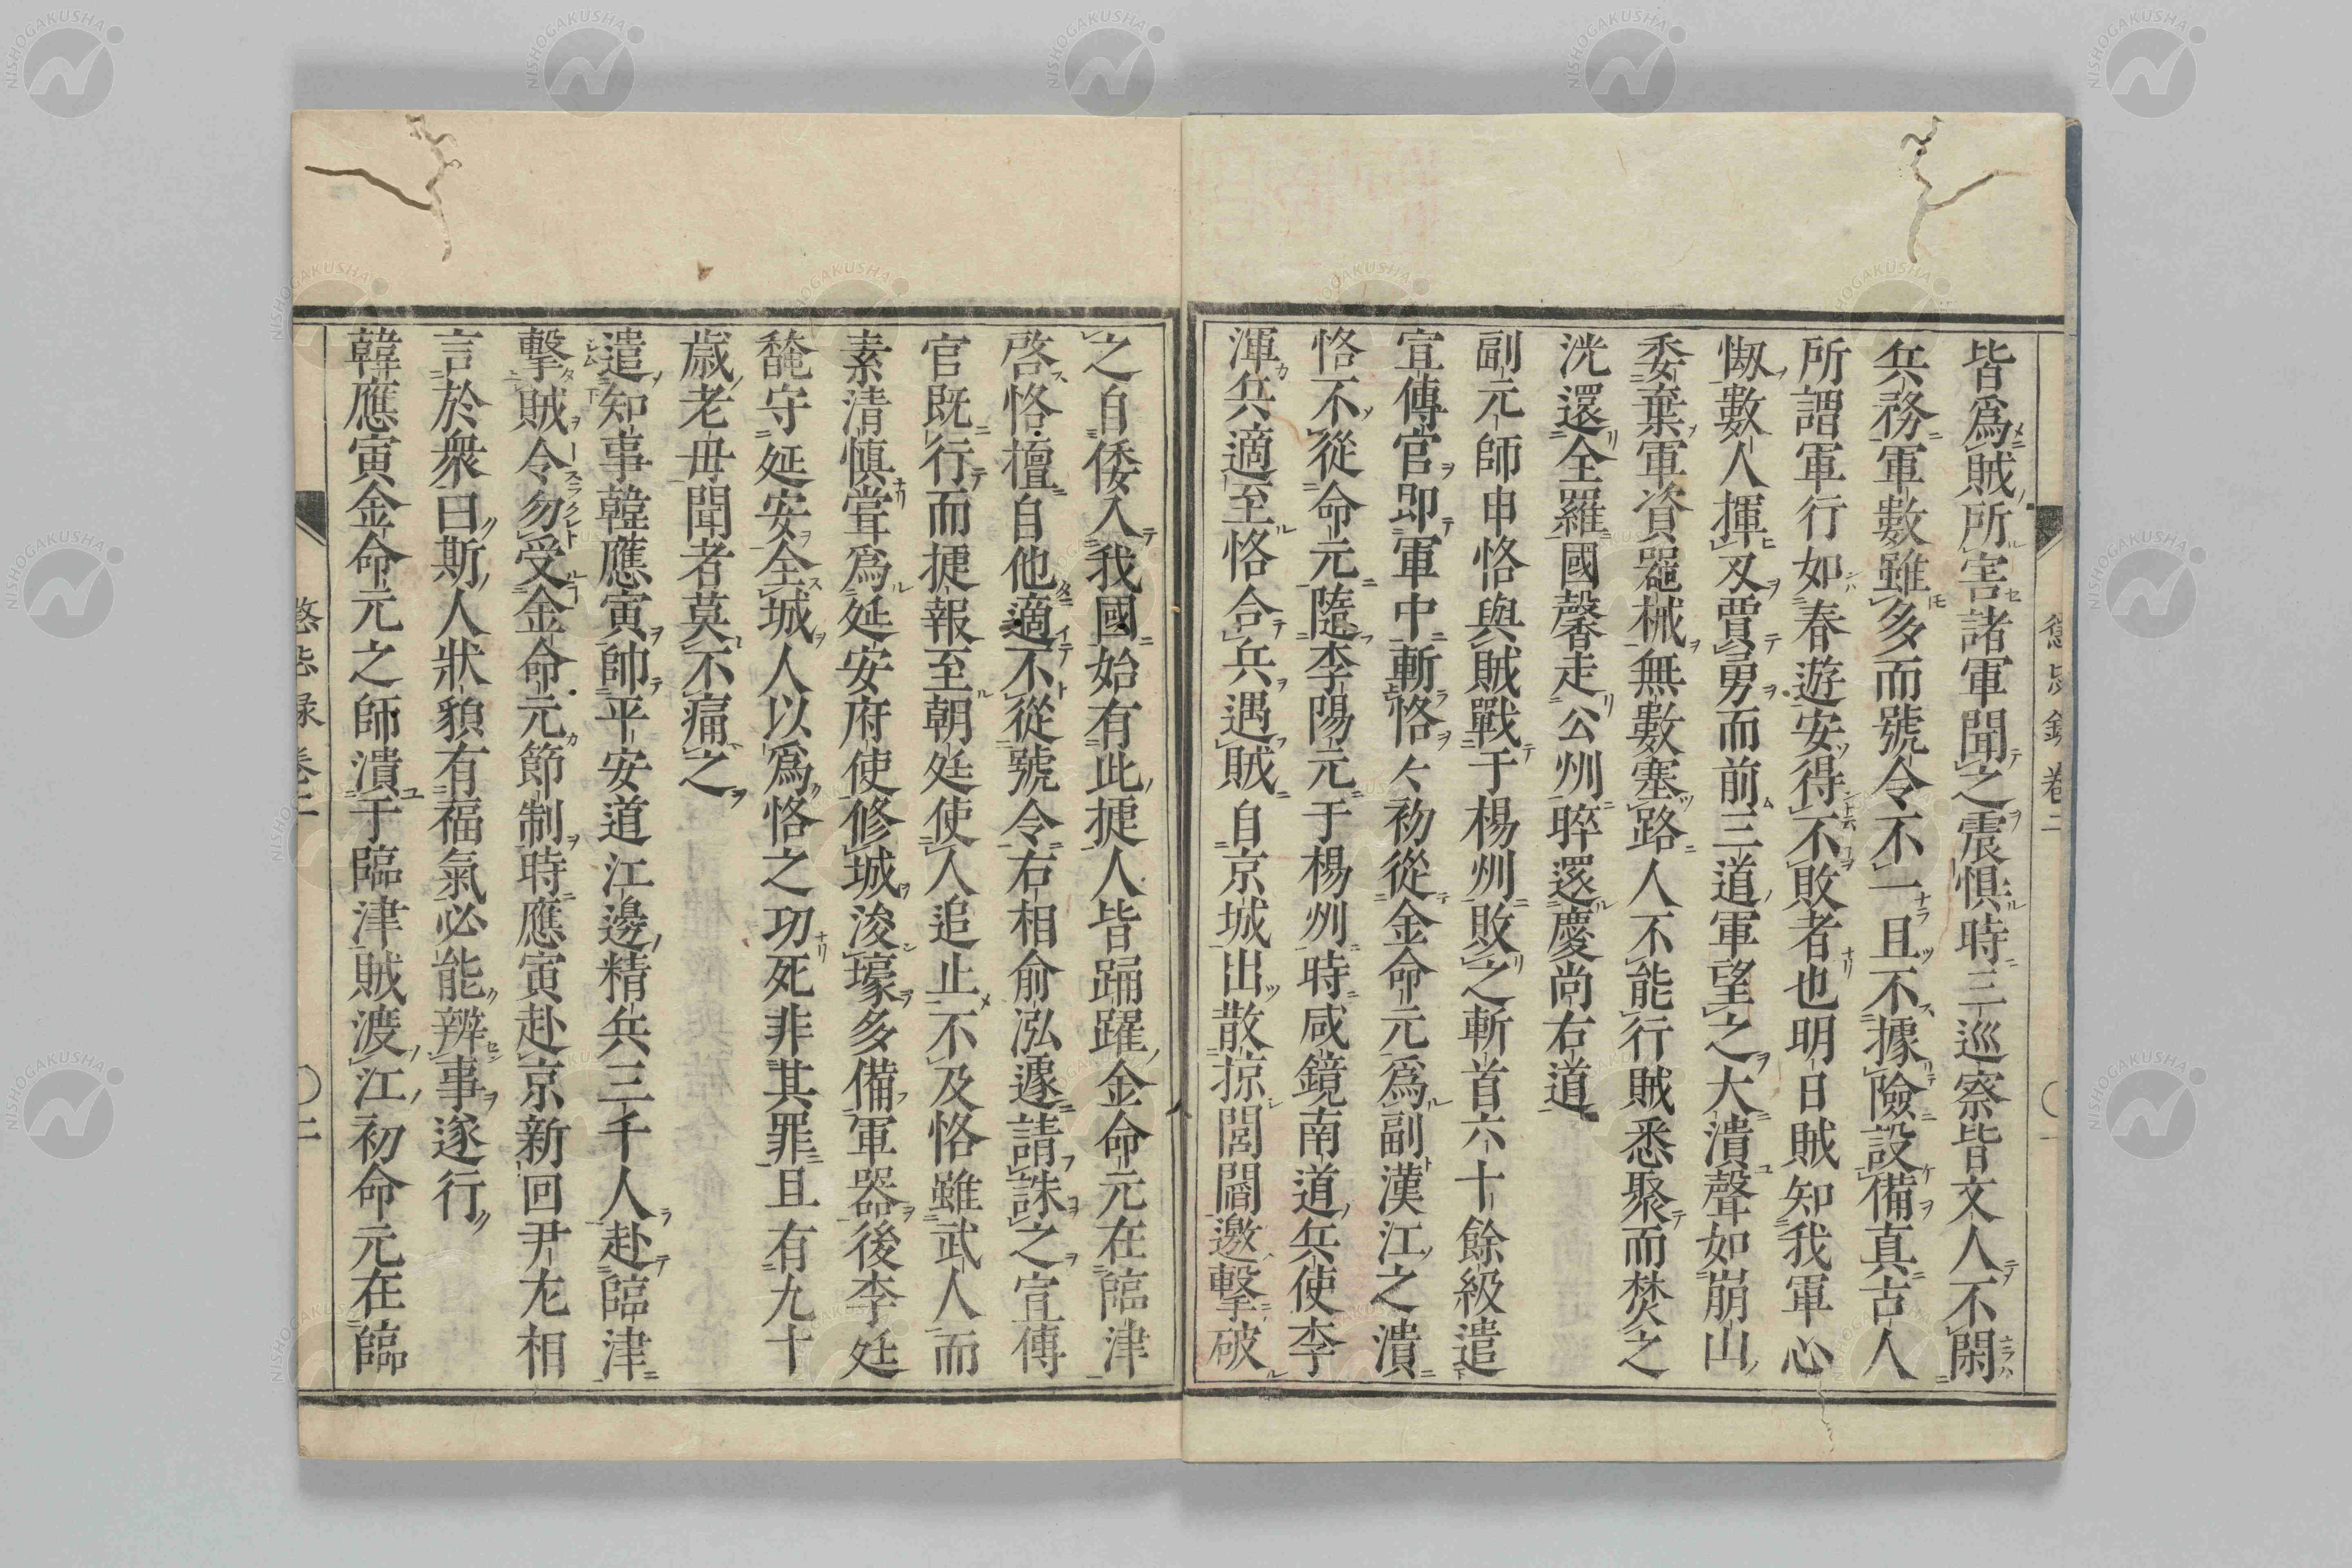 皆爲賊所害諸軍聞之震惧時三巡察皆文人不閑
兵務軍數雖多而號令不一且不據險設備真古人
所謂軍行如春遊安得不敗者也明日賊知我軍心
㥘數人揮刄賈勇而前三道軍望之大潰聲如崩山
委棄軍資器械無數塞路人不能行賊悉聚而焚之
洸還全羅國馨走公州睟還慶尚右道
副元師申恪與賊戰于楊州敗之斬首六十餘級遣
宣傳官即軍中斬恪々初從金命元爲副漢江之潰
恪不從命元隨李陽元于楊州時咸鏡南道兵使李
渾兵適至恪合兵遇賊自京城出散掠閭閻邀擊破
之自倭入我國始有此捷人皆踊躍金命元在臨津
啓恪擅自他適不從號令右相俞泓遽請誅之宣傳
官既行而捷報至朝廷使人追止不及恪雖武人而
素清慎甞爲延安府使修城浚壕多備軍器後李廷
馣守延安全城人以爲恪之功死非其罪且有九十
歳老母聞者莫不痛之
遣知事韓應寅帥平安道江邊精兵三千人赴臨津
擊賊令勿受金命元節制時應寅赴京新回尹左相
言於衆曰斯人狀貌有福氣必能辨事遂行
韓應寅金命元之師潰于臨津賊渡江初命元在臨
懲毖錄卷二
〇一
懲毖録卷二
〇二
NISHOGAKUSHA